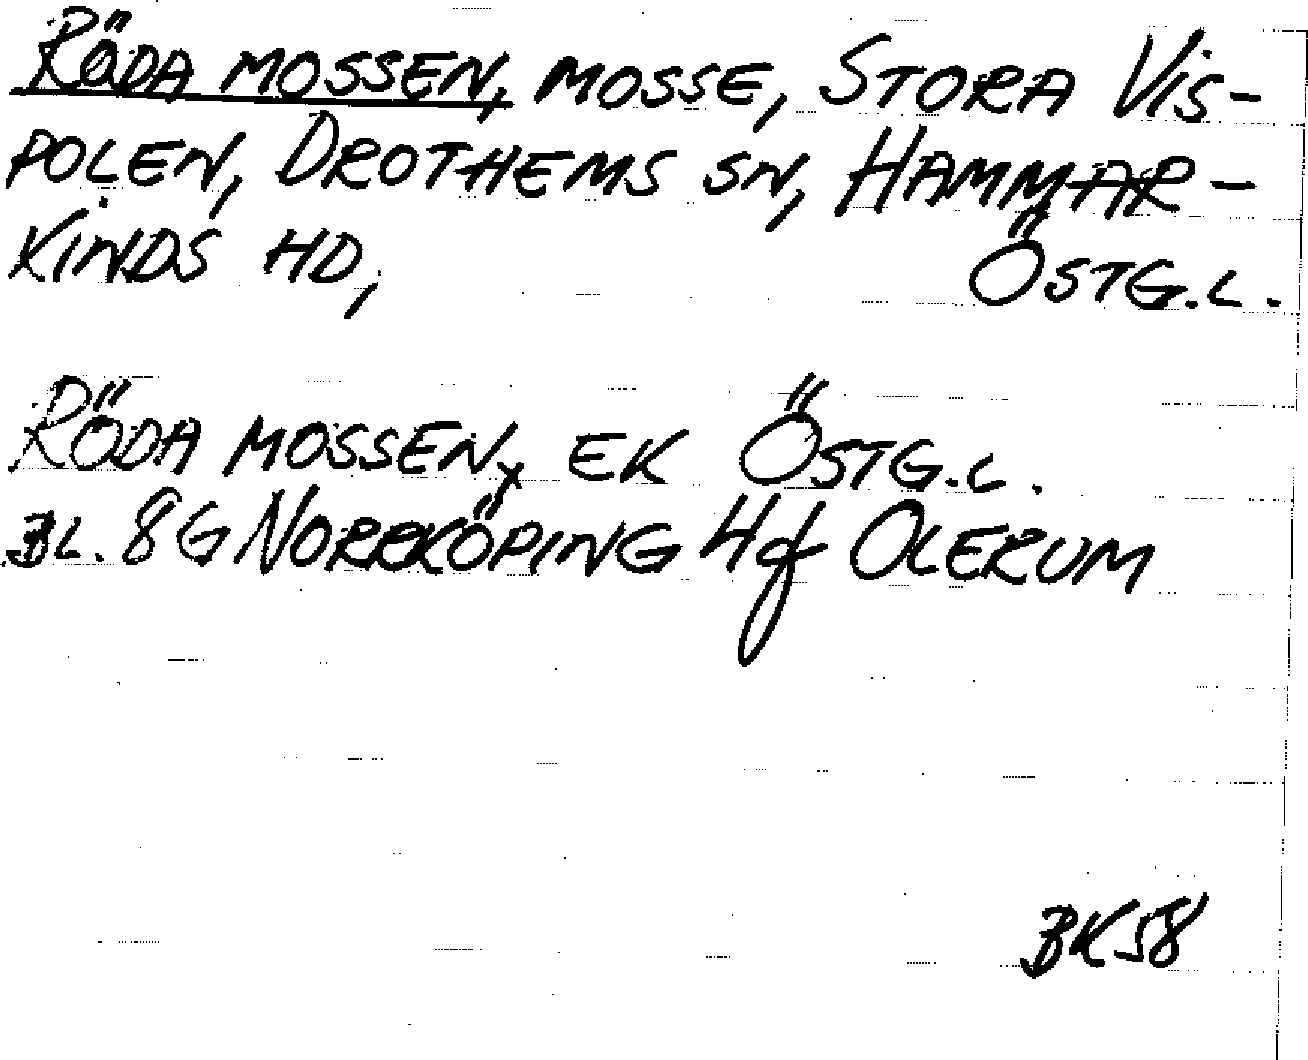 RÖDA MOSSEN, MOSSE, STORA VIS-
POLEN, DROTHEMS SN, HAMMAR-
KINDS HD, ÖSTG.L.
RÖDA MOSSEN, EK ÖSTG.L.
BL. 8G NORRKÖPING 4f OLERUM
BK58